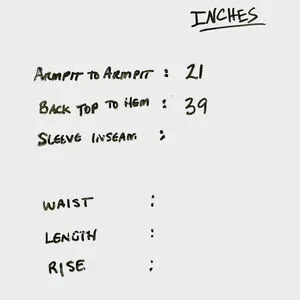 INCHES
ARMPIT TO ARMPIT : 21
BACK TOP TO HEM : 39
SLEEVE INSEAM :
WAIST :
LENGTH :
RISE :